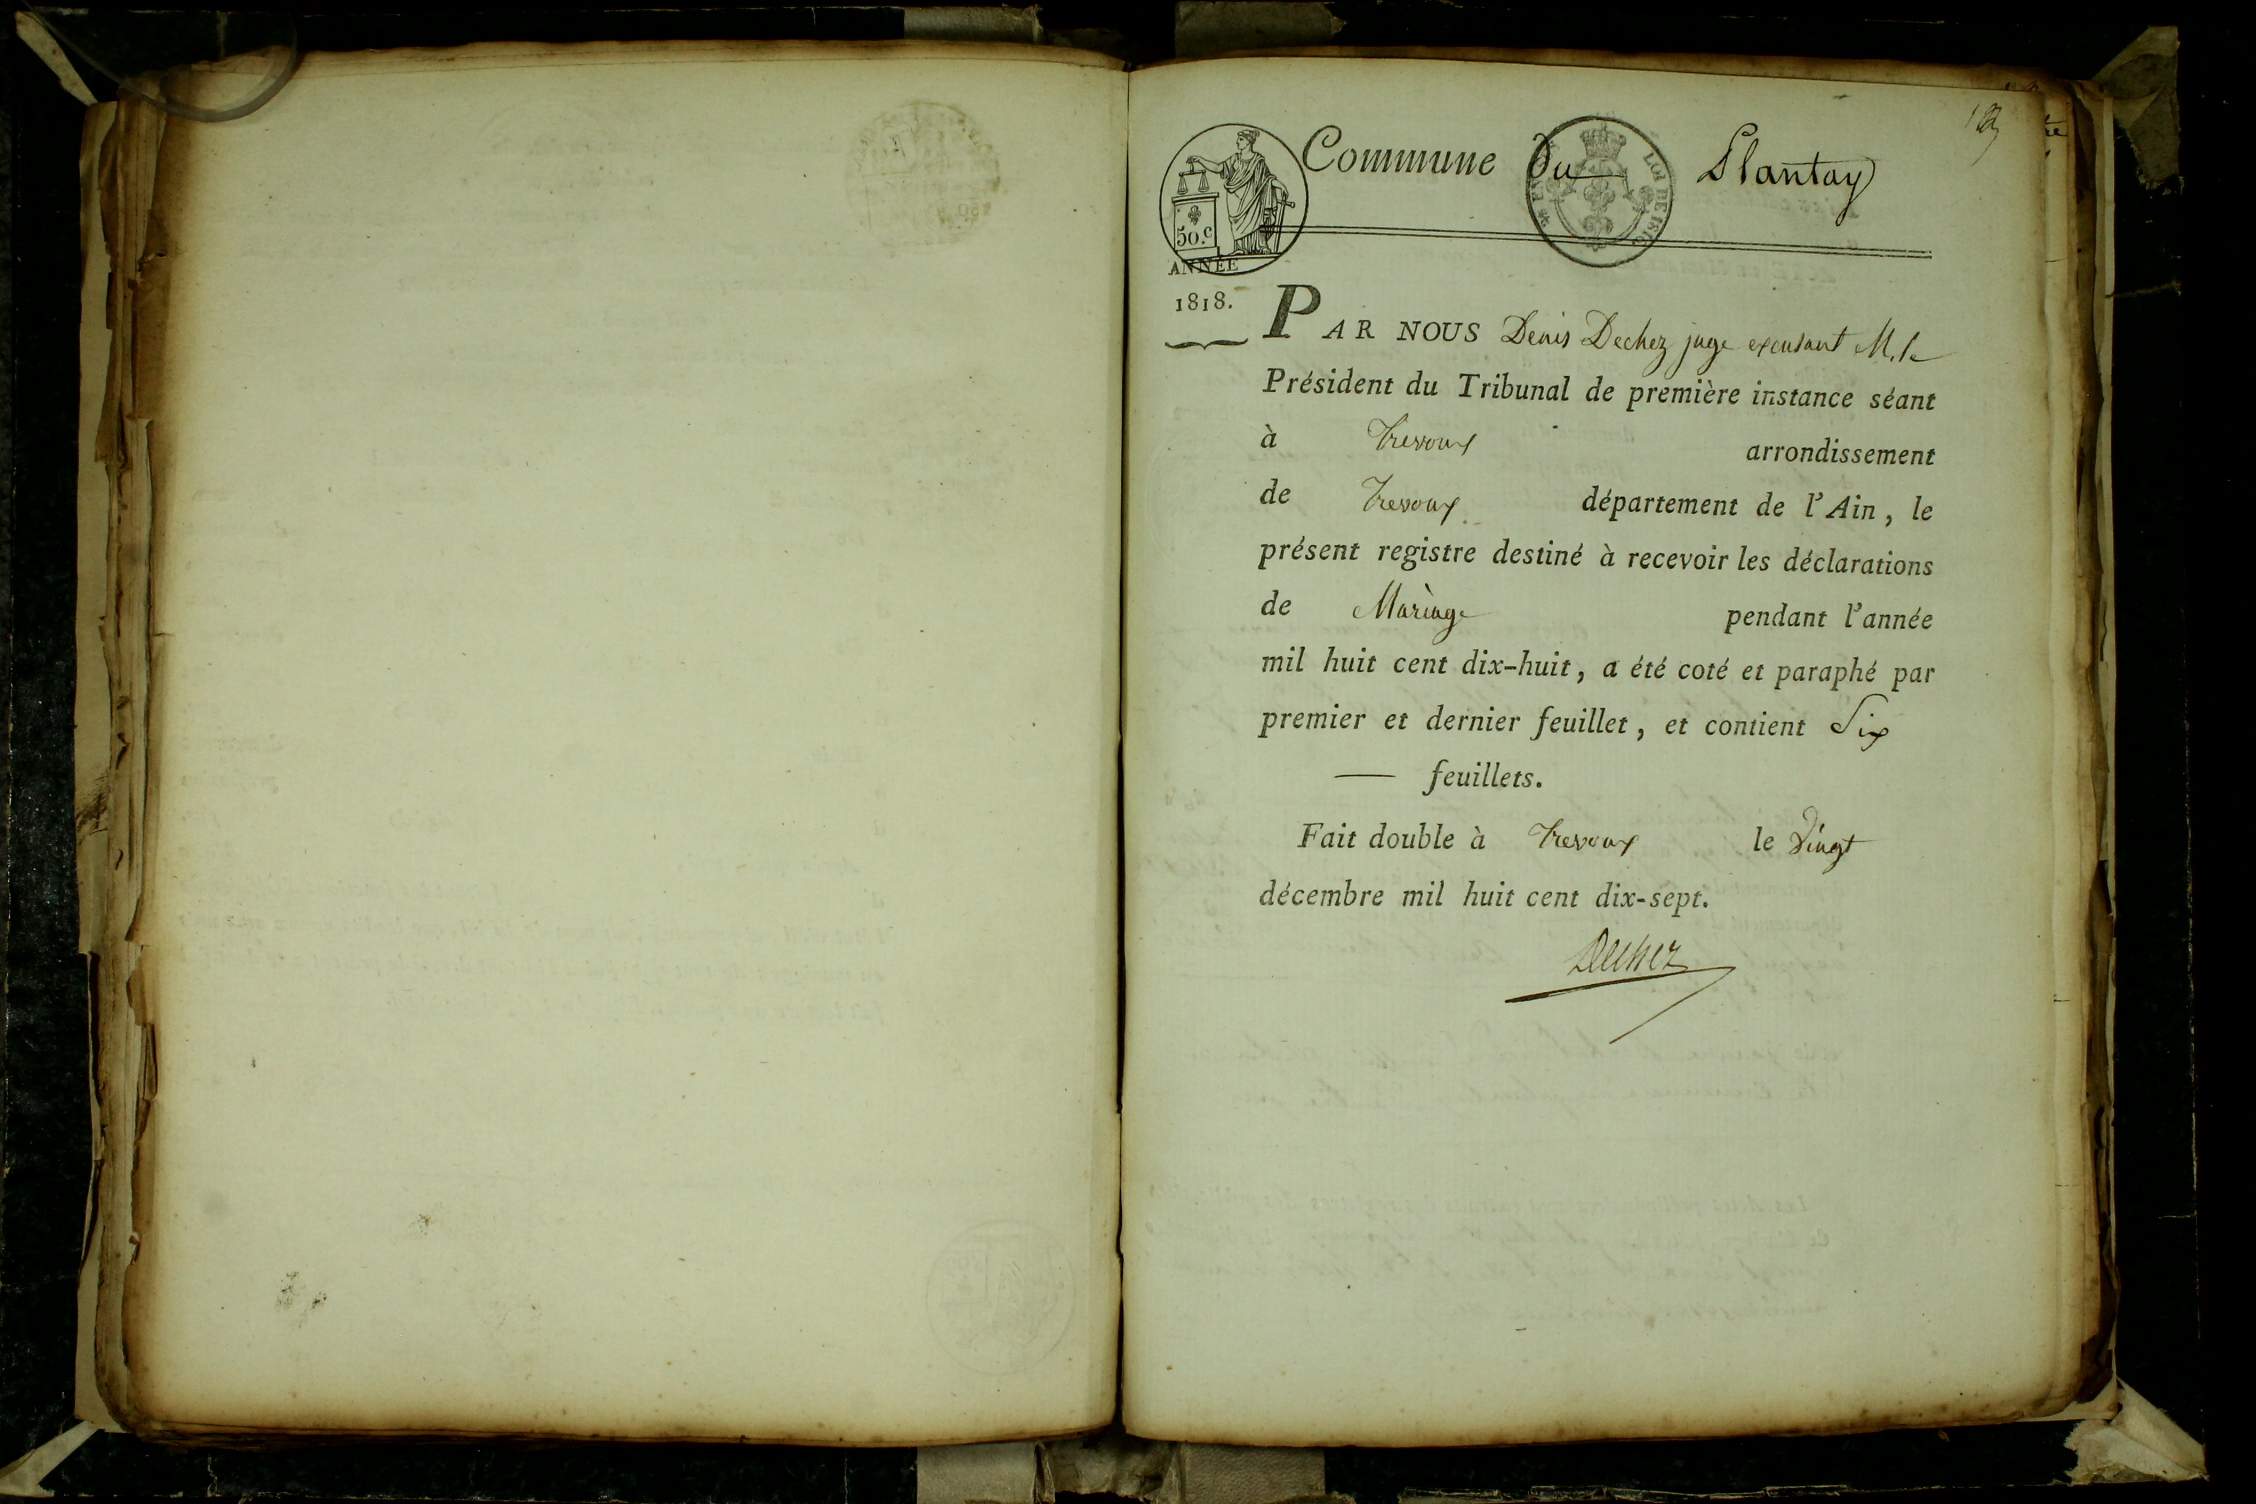 Commune du Plantay
50.c
LOI DE 1816
ANNÉE
1818.
PAR NOUS Denis Dechez juge excusant M. le
Président du Tribunal de première instance séant
à Trevoux arrondissement
de Trevoux département de l'Ain, le
présent registre destiné à recevoir les déclarations
de Mariage pendant l'année
mil huit cent dix-huit, a été coté et paraphé par
premier et dernier feuillet, et contient Six
— feuillets.
Fait double à Trevoux le Vingt
décembre mil huit cent dix-sept.
Dechez